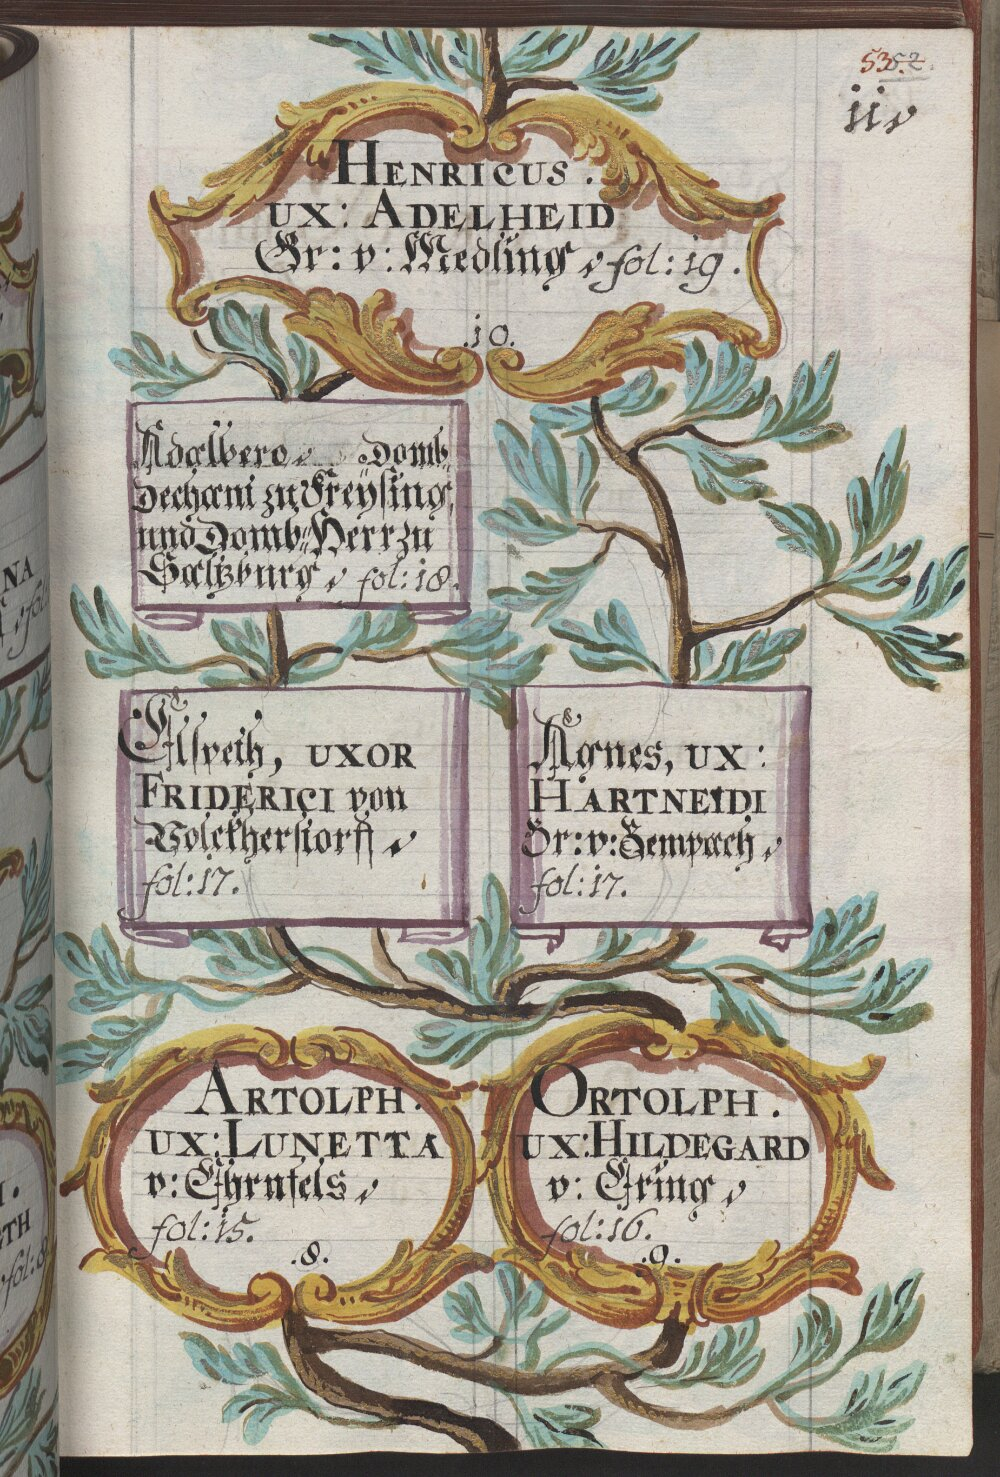 53. 52.
ii
HENRICUS.
UX: ADELHEID
Gr: v: Medling, fol: 19.
.10.
Adalbero, Domb=
dechant zu Freysing,
und Domb=Herr zu
Saltzburg, fol: 18.
Elspeth, UXOR
FRIDERICI von
Volckherstorff,
fol: 17.
Agnes, UX:
HARTNEIDI
Gr: v:
fol: 17.
ARTOLPH.
UX: LUNETTA
v: Ehrnfels,
fol: 15.
.8.
ORTOLPH.
UX: HILDEGARD
v: Ering,
fol: 16.
.9.
NA
GTH
fol: 8